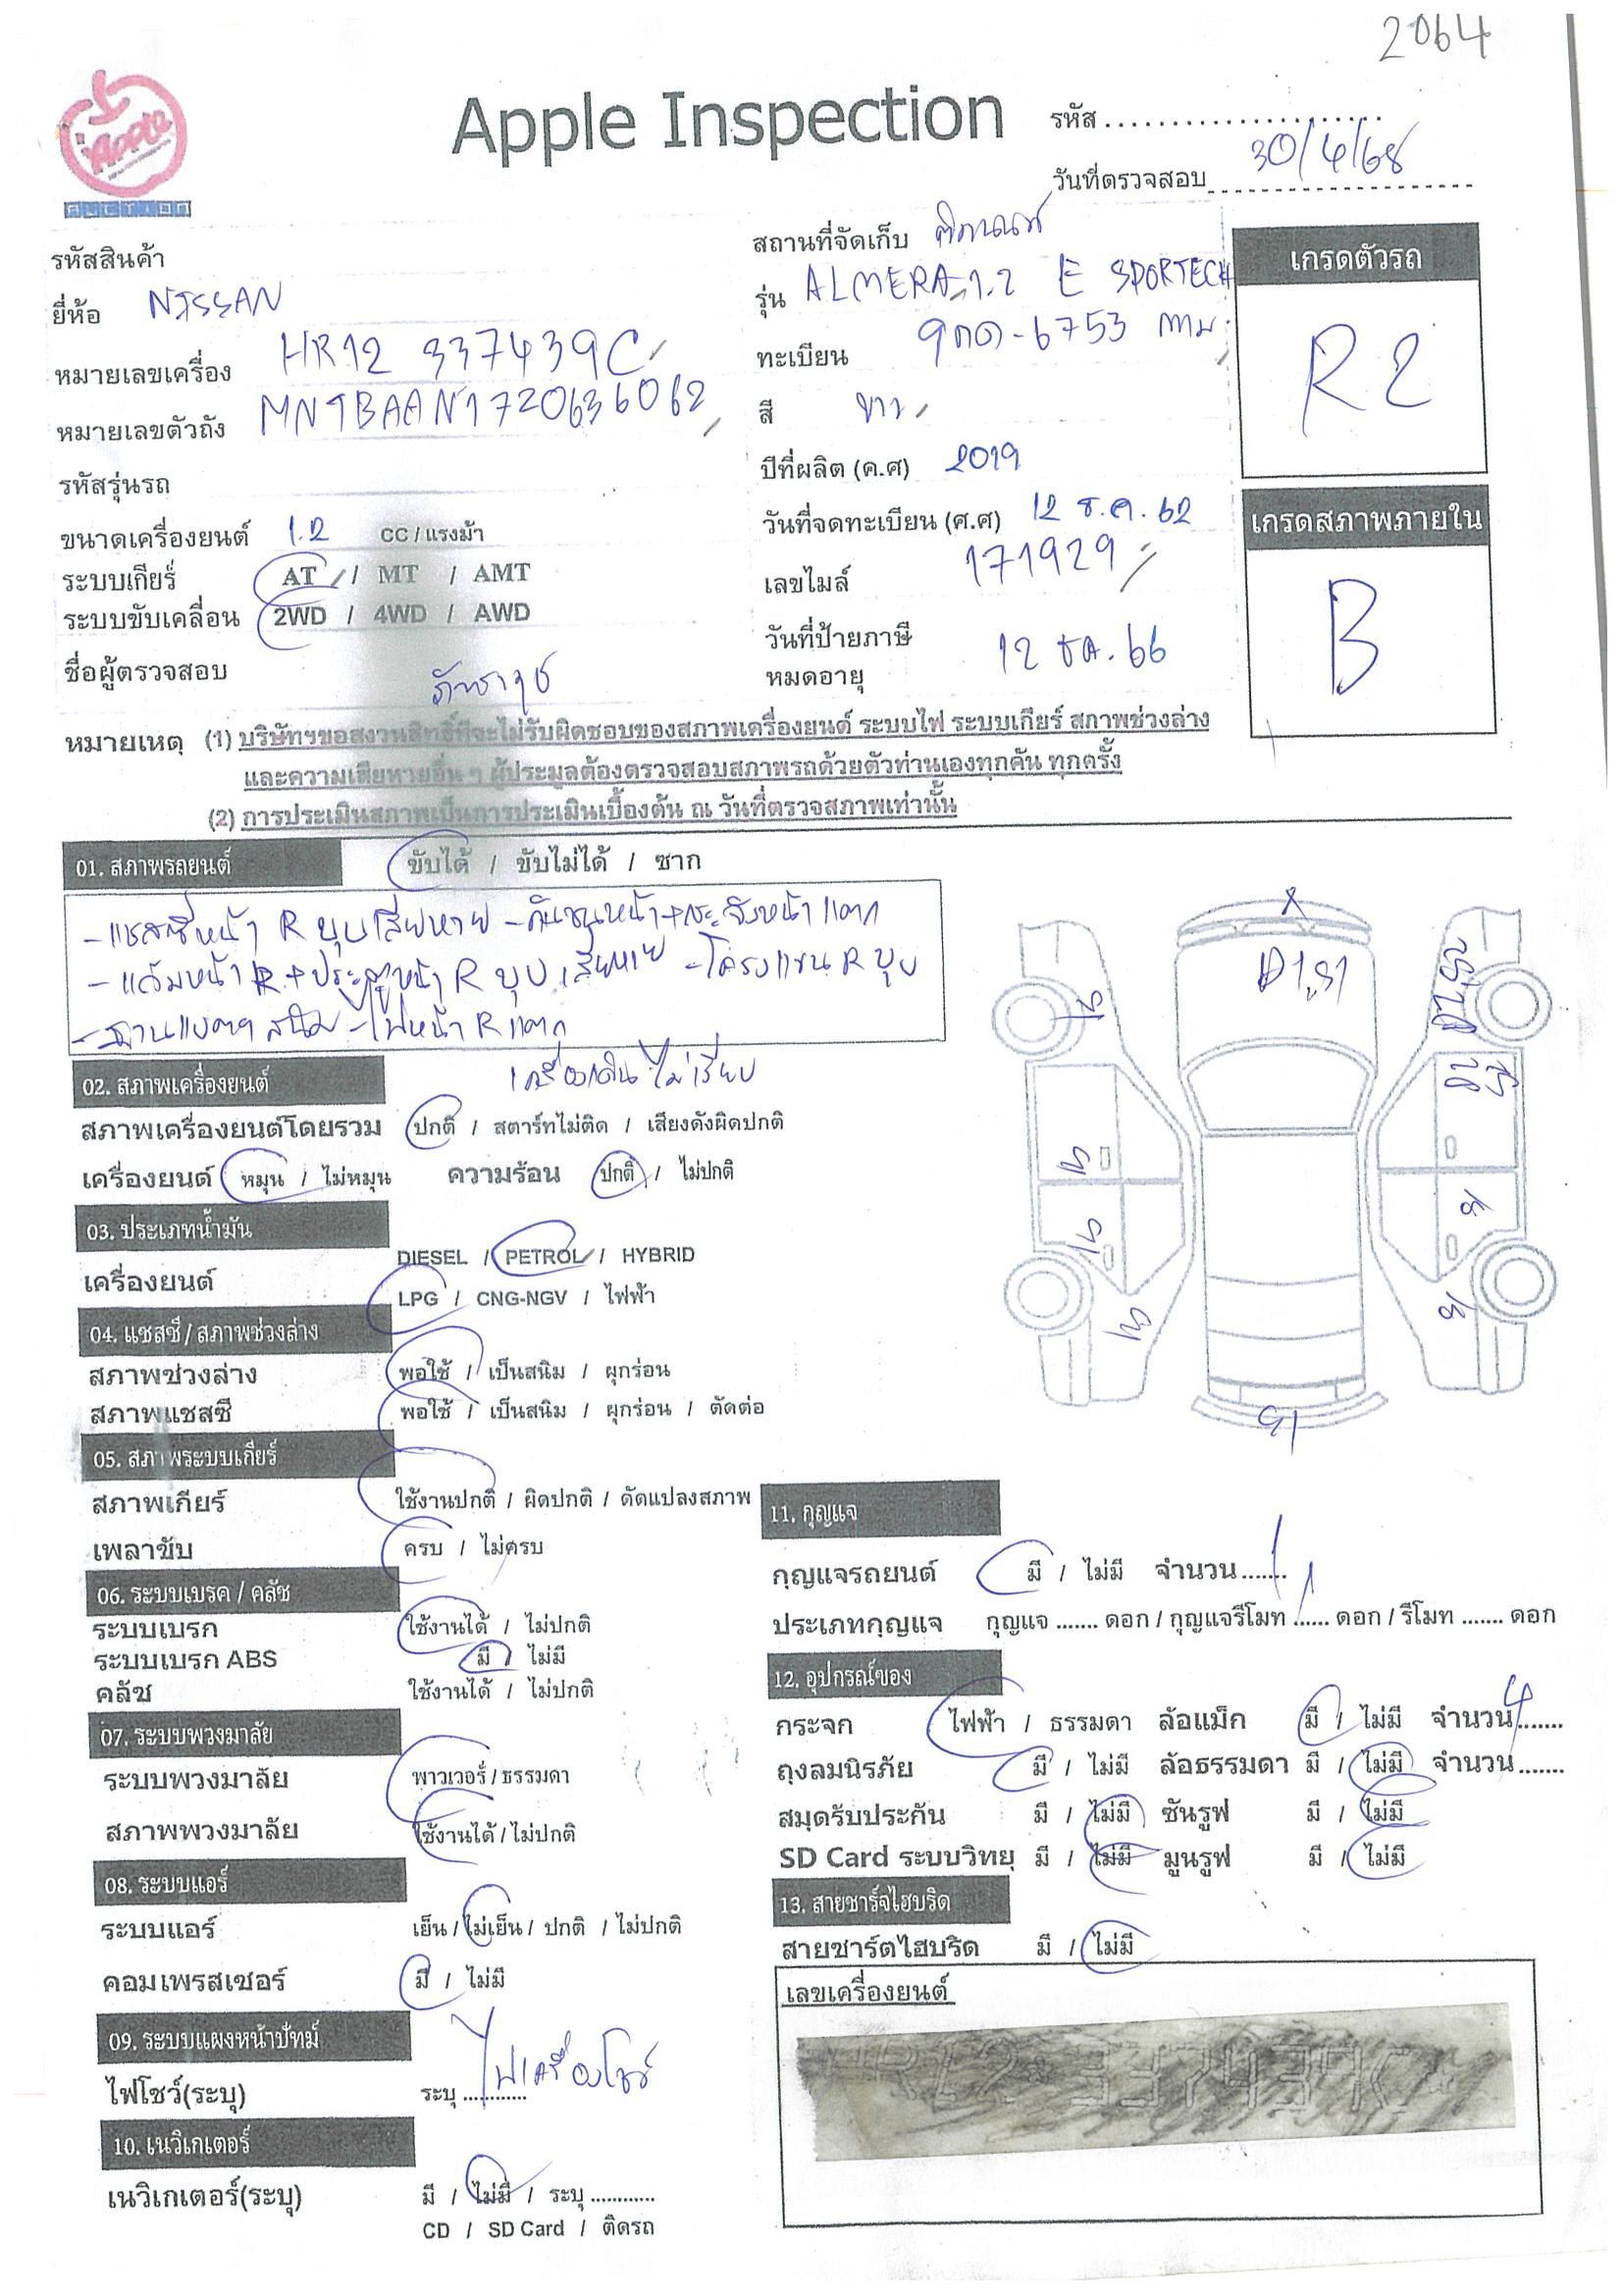 2064
Apple
AUCTION
Apple Inspection
รหัส
วันที่ตรวจสอบ 30/4/68
รหัสสินค้า
สถานที่จัดเก็บ
ยี่ห้อ NISSAN
รุ่น ALMERA 1.2 E SPORTECH
หมายเลขเครื่อง HR12 337439C
ทะเบียน 9กด-6753 กทม.
หมายเลขตัวถัง MNTBAAN17Z0636062
สี ขาว
รหัสรุ่นรถ
ปีที่ผลิต (ค.ศ) 2019
ขนาดเครื่องยนต์ 1.2 CC / แรงม้า
วันที่จดทะเบียน (ศ.ศ) 12 ธ.ค. 62
ระบบเกียร์ AT / MT / AMT
เลขไมล์ 171929
ระบบขับเคลื่อน 2WD / 4WD / AWD
วันที่ป้ายภาษี
หมดอายุ 12 ธค. 66
ชื่อผู้ตรวจสอบ
เกรดตัวรถ
R2
เกรดสภาพภายใน
B
หมายเหตุ (1) บริษัทฯขอสงวนสิทธิ์ที่จะไม่รับผิดชอบของสภาพเครื่องยนต์ ระบบไฟ ระบบเกียร์ สภาพช่วงล่าง
และความเสียหายอื่น ๆ ผู้ประมูลต้องตรวจสอบสภาพรถด้วยตัวท่านเองทุกคัน ทุกครั้ง
(2) การประเมินสภาพเป็นการประเมินเบื้องต้น ณ วันที่ตรวจสภาพเท่านั้น
01. สภาพรถยนต์ ขับได้ / ขับไม่ได้ / ซาก
- แชสซี่หน้า R ยุบเสียหาย - กันชนหน้า+กระจังหน้าแตก
- แก้มหน้า R + ประตูหน้า R ยุบเสียหาย - โครงแขน R ยุบ
- ฐานแบตฯ สนิม - ไฟหน้า R แตก
02. สภาพเครื่องยนต์ เครื่องเดินไม่เรียบ
สภาพเครื่องยนต์โดยรวม ปกติ / สตาร์ทไม่ติด / เสียงดังผิดปกติ
เครื่องยนต์ หมุน / ไม่หมุน ความร้อน ปกติ / ไม่ปกติ
03. ประเภทน้ำมัน
DIESEL / PETROL / HYBRID
เครื่องยนต์
LPG / CNG-NGV / ไฟฟ้า
04. แชสซี / สภาพช่วงล่าง
สภาพช่วงล่าง พอใช้ / เป็นสนิม / ผุกร่อน
สภาพแชสซี พอใช้ / เป็นสนิม / ผุกร่อน / ตัดต่อ
05. สภาพระบบเกียร์
สภาพเกียร์ ใช้งานปกติ / ผิดปกติ / ดัดแปลงสภาพ
เพลาขับ ครบ / ไม่ครบ
06. ระบบเบรค / คลัช
ระบบเบรก ใช้งานได้ / ไม่ปกติ
ระบบเบรก ABS มี / ไม่มี
คลัช ใช้งานได้ / ไม่ปกติ
07. ระบบพวงมาลัย
ระบบพวงมาลัย พาวเวอร์ / ธรรมดา
สภาพพวงมาลัย ใช้งานได้ / ไม่ปกติ
08. ระบบแอร์
ระบบแอร์ เย็น / ไม่เย็น / ปกติ / ไม่ปกติ
คอมเพรสเซอร์ มี / ไม่มี
09. ระบบแผงหน้าปัทม์
ไฟโชว์(ระบุ) ระบุ ไฟเครื่องโชว์
10. เนวิเกเตอร์
เนวิเกเตอร์(ระบุ) มี / ไม่มี / ระบุ
CD / SD Card / ติดรถ
11. กุญแจ
กุญแจรถยนต์ มี / ไม่มี จำนวน 1
ประเภทกุญแจ กุญแจ ....... ดอก / กุญแจรีโมท 1 ดอก / รีโมท ....... ดอก
12. อุปกรณ์ของ
กระจก ไฟฟ้า / ธรรมดา ล้อแม็ก มี / ไม่มี จำนวน 4
ถุงลมนิรภัย มี / ไม่มี ล้อธรรมดา มี / ไม่มี จำนวน .......
สมุดรับประกัน มี / ไม่มี ซันรูฟ มี / ไม่มี
SD Card ระบบวิทยุ มี / ไม่มี มูนรูฟ มี / ไม่มี
13. สายชาร์จไฮบริด
สายชาร์ตไฮบริด มี / ไม่มี
เลขเครื่องยนต์
HR12* 337439C